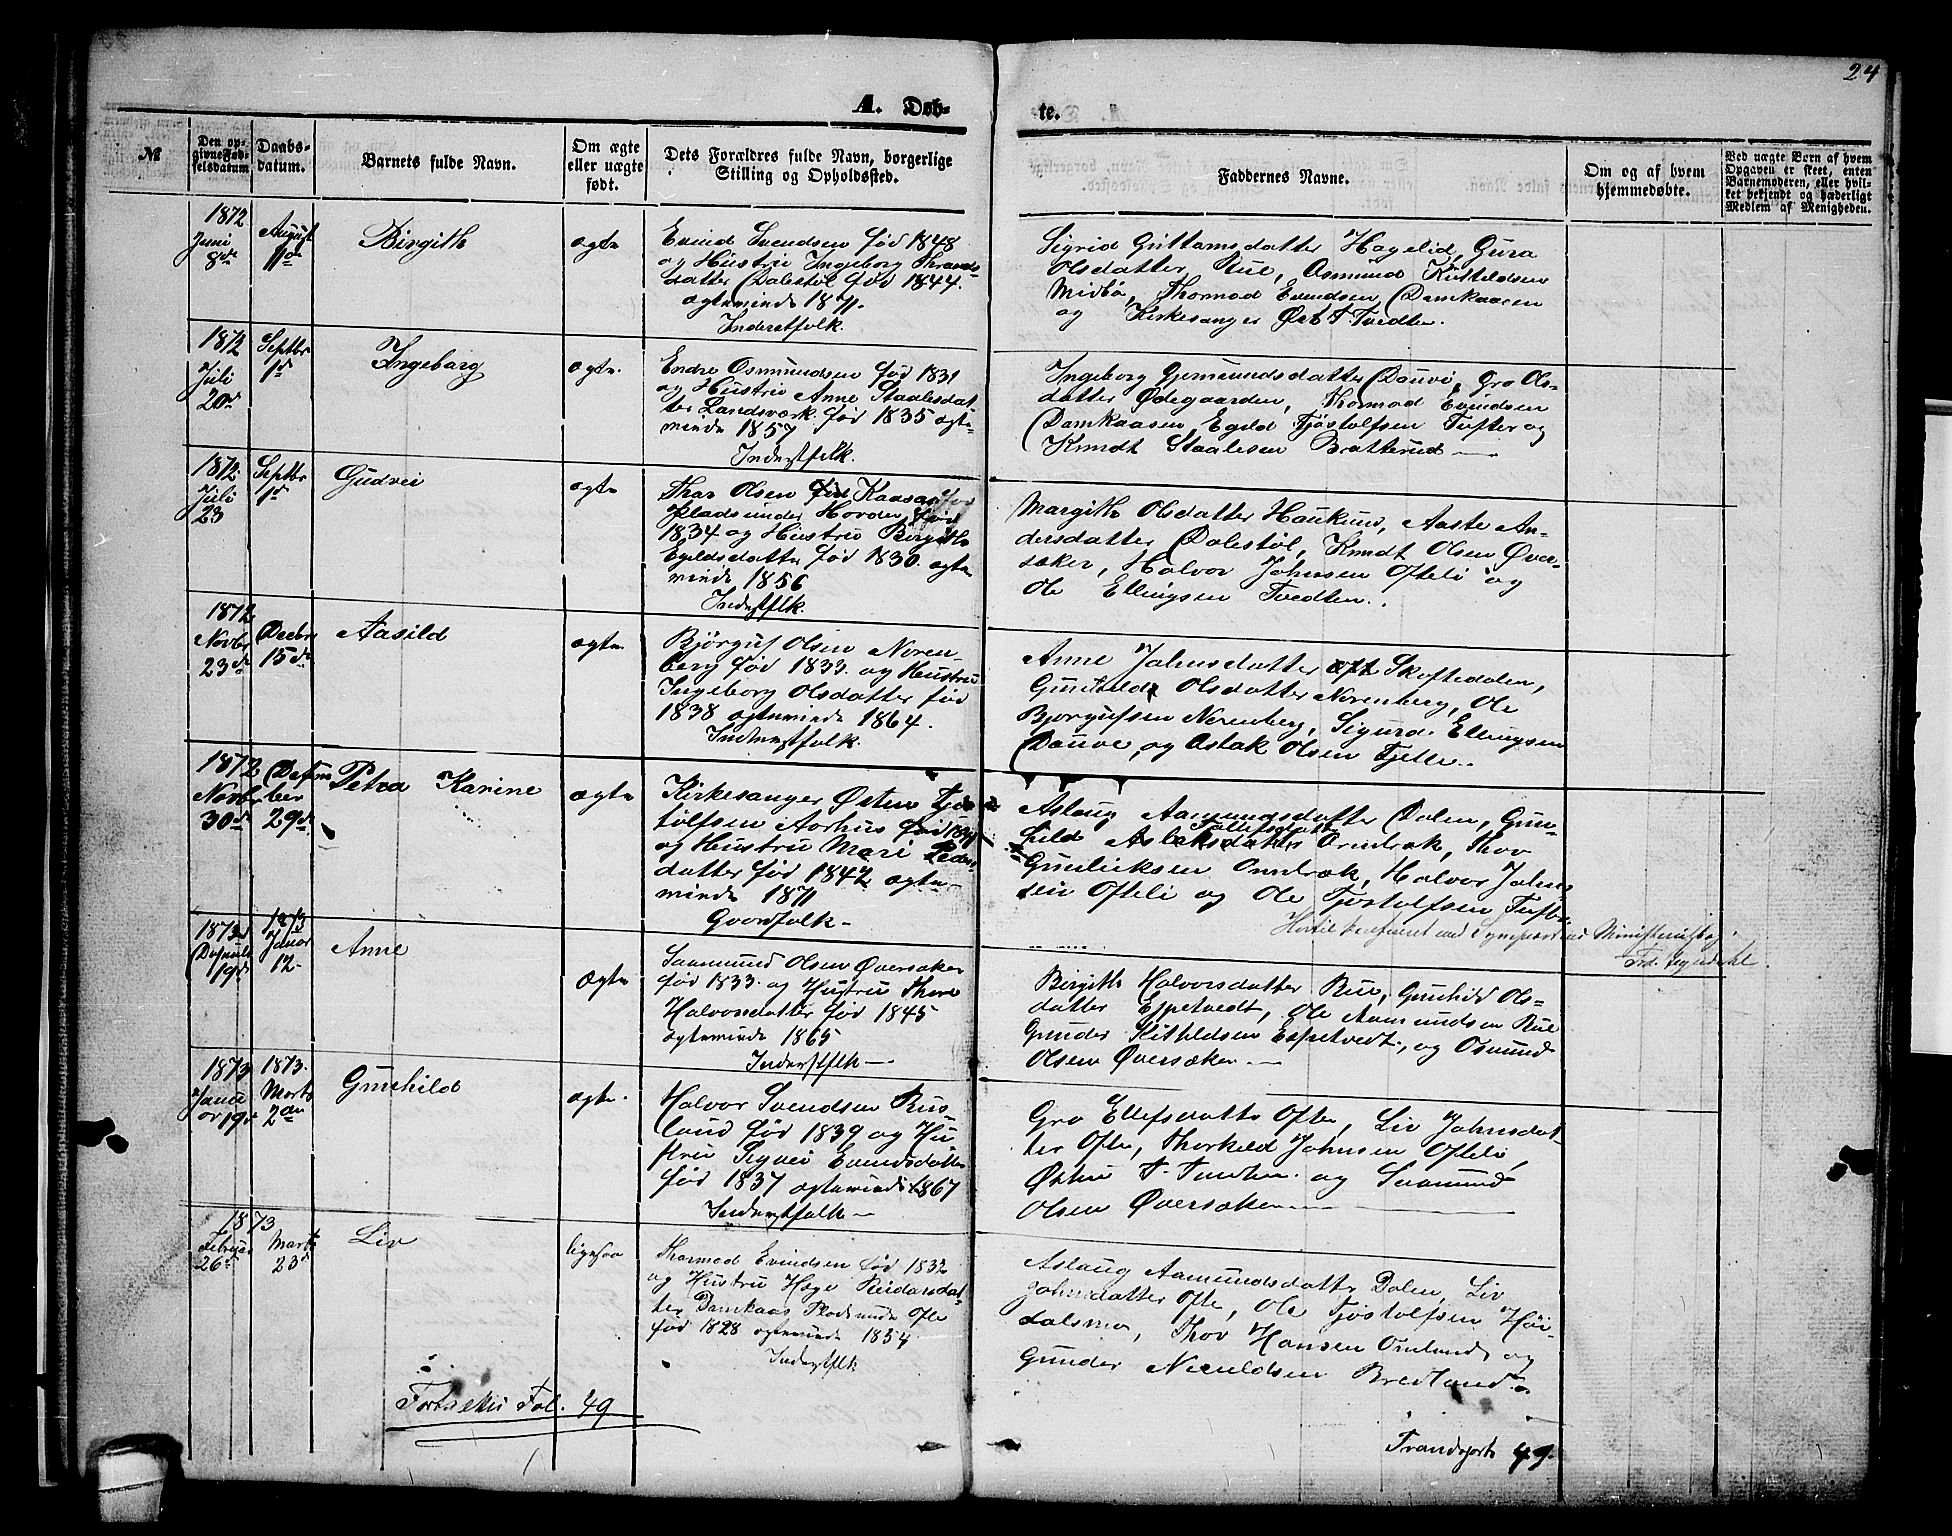 24
A. Døb-
te.
№
Den op-
givne Fød-
selsdatum
Daabs-
datum.
Barnets fulde Navn.
Om ægte
eller uægte
født.
Dets Forældres fulde Navn, borgerlige
Stilling og Opholdssted.
Faddernes Navne.
Om og af hvem
hjemmedøbte.
Ved uægte Børn af hvem
Opgaven er skeet, enten
Barnemoderen, eller hvil-
ket bekjendt og hæderligt
Medlem af Menigheden.
1872
Juni
8de
August
11de
Birgith
ægte
Evind Svendsen fød 1848
og Hustru Ingeborg Thronds-
datter Dalestøl fød 1844.
ægteviede 1871.
Inderstfolk.
Sigrid Guttormsdatter Hagelid, Gura
Olsdatter Rue, Osmund Kittelsen
Midbø, Thormod Evindsen Damkaasen
og Kirkesanger Øst. T. Tvedten.
1872
Juli
20de
Septbr
1ste
Ingeborg
ægte.
Endre Osmundsen fød 1831
og Hustru Anne Staalesdat-
ter Landsverk fød 1835 ægte-
viede 1857
Inderstfolk.
Ingeborg Gjermundsdatter Dauvi, Gro Ols-
datter Ødegaarden, Thormod Evindsen
Damkaasen, Egild Tjøstolfsen Tufte og
Knudt Staalesen Bratterud
1872
Juli
23
Septbr
1st
Gudvei
ægte
Thor Olsen Kaasa
Plads under Hovden, fød
1834 og Hustru Birgith
Egildsdatter fød 1830. ægte
viede 1856
Inderstflk.
Margith Olsdatter Haukum, Aaste An-
dersdatter Dalestøl, Knudt Olsen Øver-
sæker, Halvor Johnsen Ofteli og
Ole Ellingsen Tvedten.
1872
Novbr
23de
Decbr
15de
Aasild
ægte.
Bjørguf Olsen Noren-
berg fød 1833. og Hustru
Ingeborg Olsdatter fød
1838 ægteviede 1864.
Inderstfolk.
Anne Johnsdatter Skoftedalen,
Gunhild Olsdatter Norenberg, Ole
Bjorgufsen Norenberg, Sigurd Ellingsen
Dauve, og Aslak Olsen Fjelle.
1872
Novbr
30de
Decem
ber
29de
Petra Karine
ægte
Kirkesanger Østen Tjø
stolfsen Aarhus fød
og Hustru Mari Peders
datter fød 1842 ægte-
viede 1871
Gaardfolk
Aslaug Aamundsdatter Dalen, Gun-
hild Aslaksdatter Omdrak, Thov
Gunleiksen Omdrak, Halvor Johns
sen Ofteli og Ole Tjøstolfsen Tufte
1872
19de
1873
Januar
12.
Anne
Ægte
Saamund Olsen Øversæker
fød 1833. og Hustru Thore
Halvorsdatter fød 1845
ægteviede 1865
Inderstflk
Hertil konfereret med Ministerialbog
Birgith Halvorsdatter Rue, Gunhild Ols-
datter Espetvedt, Ole Aamundsen Rue
Gunder Kittelsen Espetvedt, og Osmund
Olsen Øversæker
1873
Janu
ar 19de
1873.
Marts
2den
Gunhild
ægte.
Halvor Svendsen Rus-
land fød 1839 og Hu-
stru Signei Evindsdatter
fød 1837 ægteviede 1867
Inderstfolk
Gro Ellefsdatter Ofte, Liv Johnsdat-
ter Ofte, Thorkild Johnsen Ofteli,
Østen T. Tvedten. og Saamund
Olsen Øversæker
1873
Februar
26de
Marts
23de
Liv
ligesaa
Thormod Evindsen fød 1832
og Hustru Hæge Reidarsdat-
ter Damkaas Plads under Ofte
fød 1828 ægteviede 1854
Inderstflk
Aslaug Aamundsdatter Dalen, Liv
Johnsdatter Ofte, Ole Tjøstolfsen Høi-
dalsmo, Thov Hansen Omlund og
Gunder Neruldsen Bredland
Fortsættes Fol. 49
Transport 49.